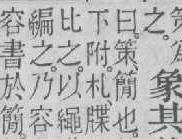 為
之
象其
曰策簡也
下附札牒
比之以繩
編之乃容
容書於簡